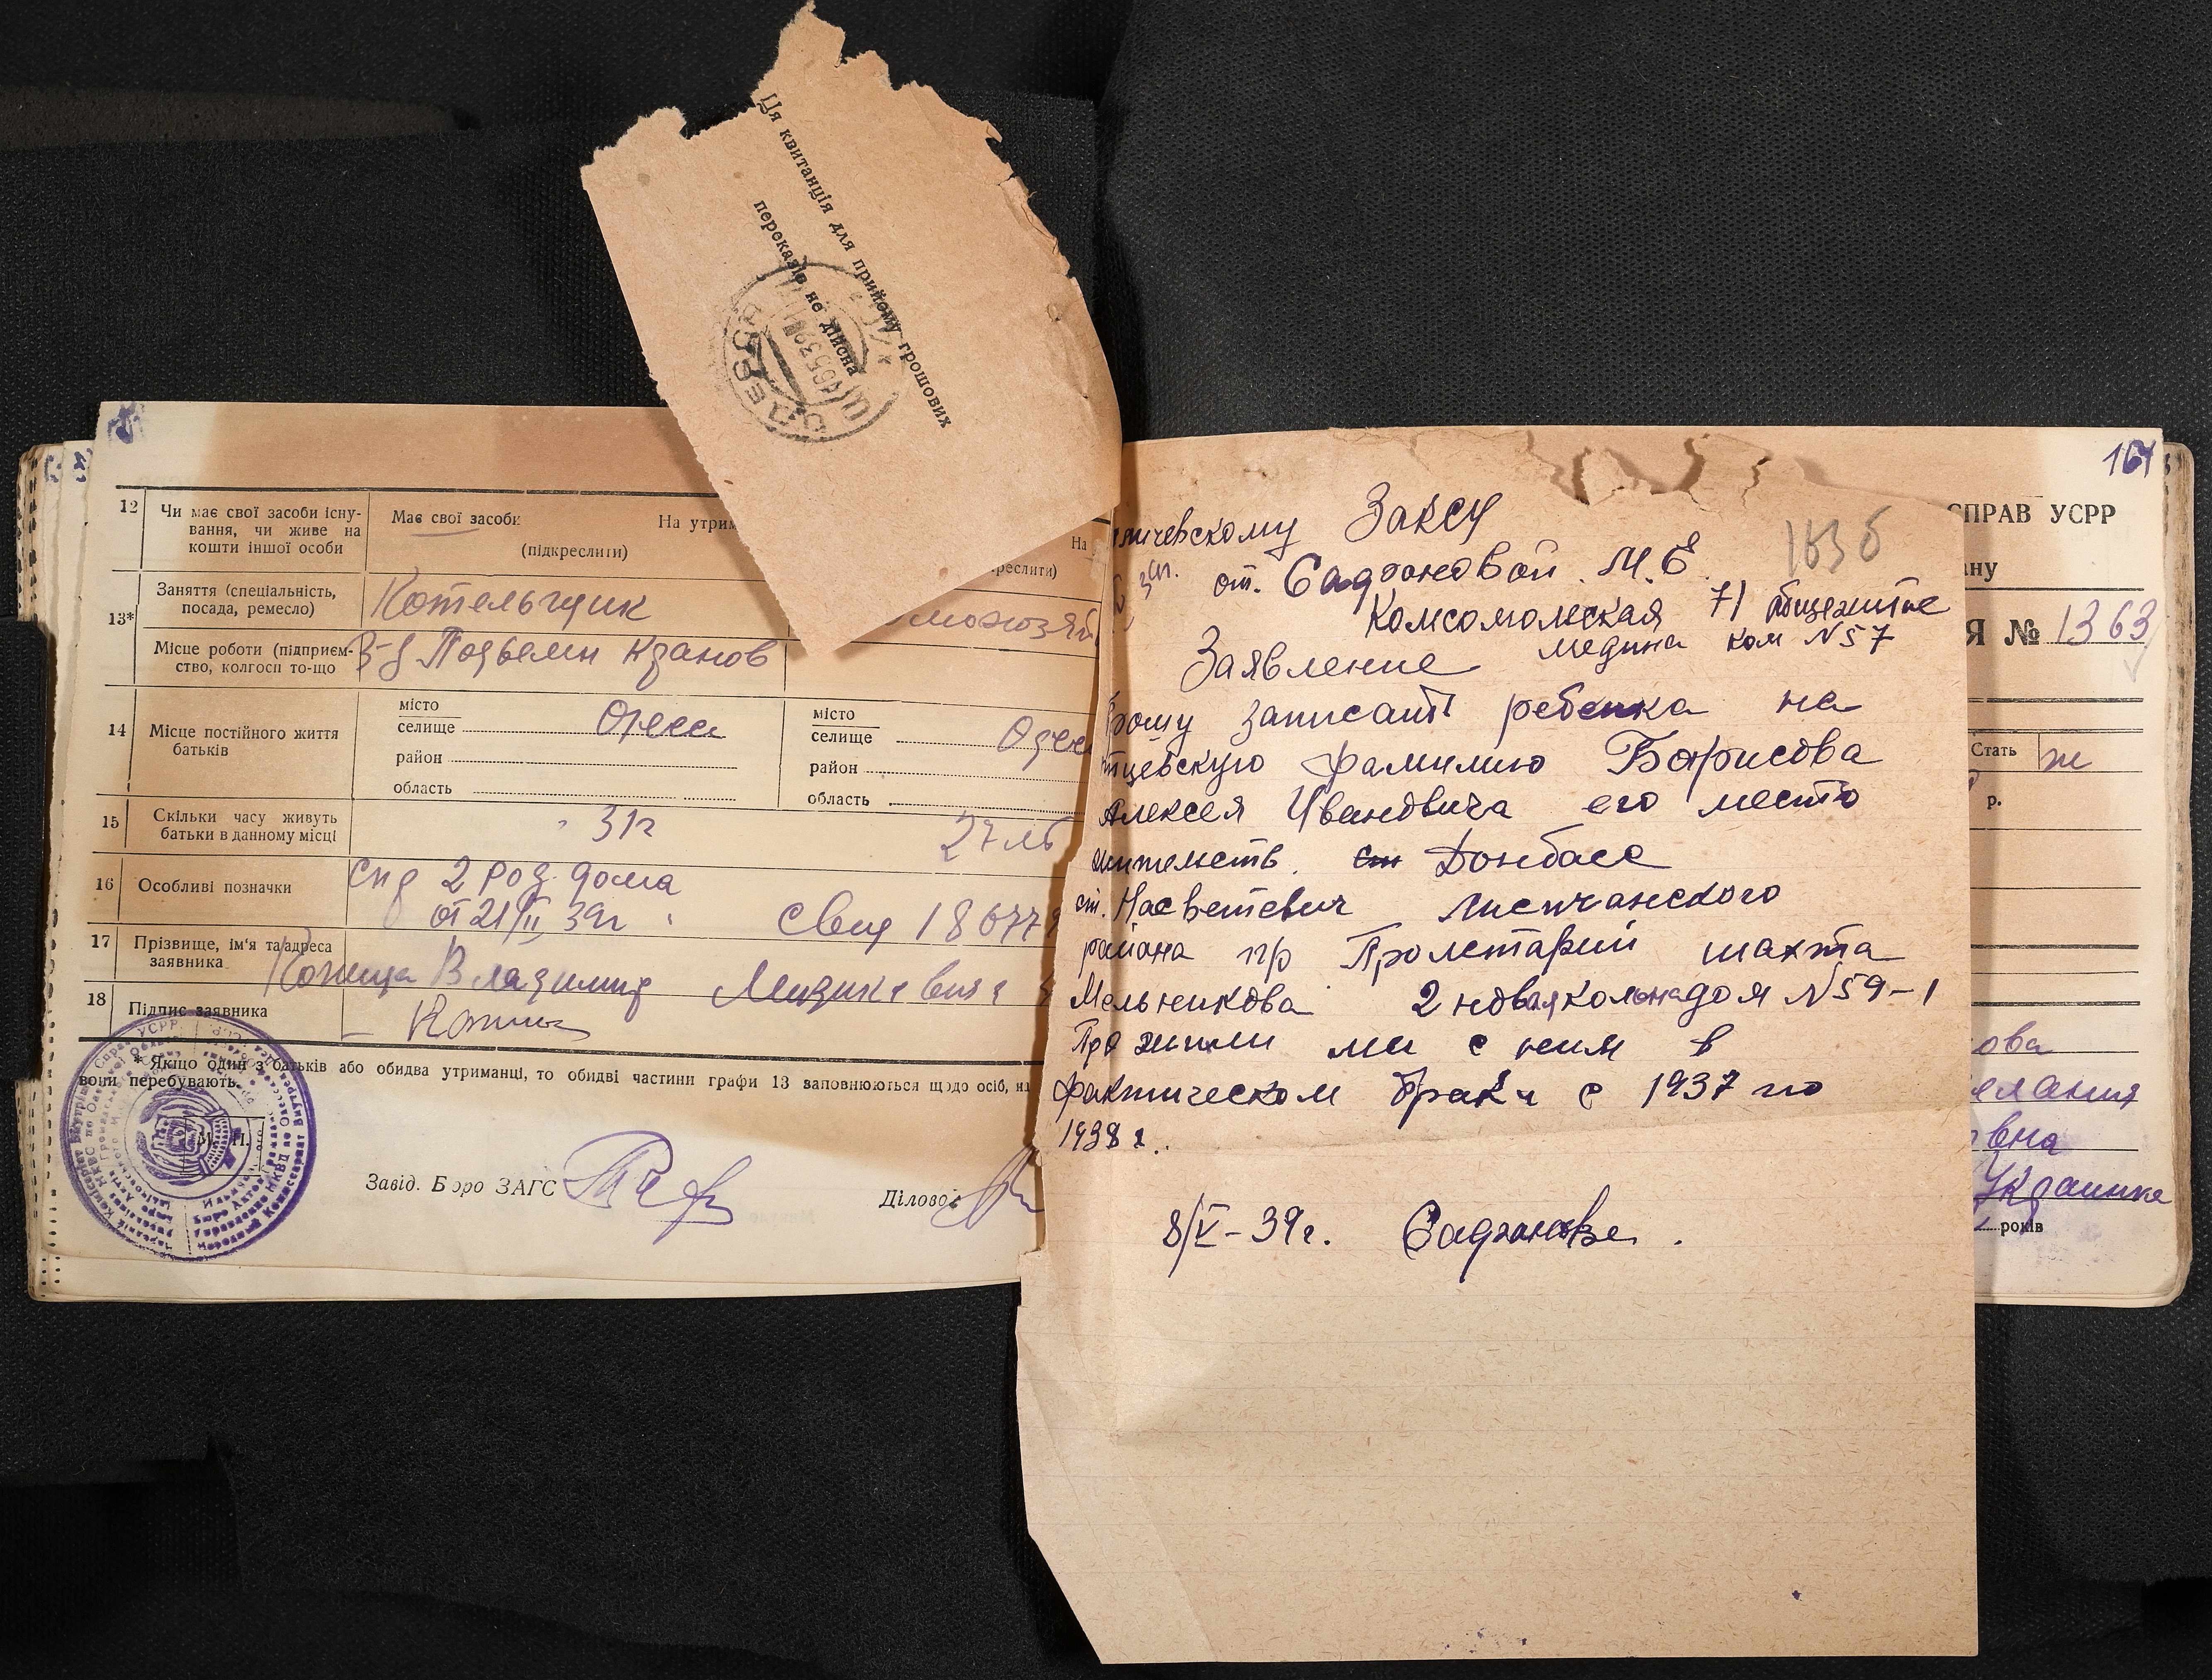 Ця квитанція для прийому грошових
переказів не дійсна
ОДЕССА
12
Чи має свої засоби існу-
вання, чи живе на
кошти іншої особи
Має свої засоби
На утрим
(підкреслити)
На
реслити)
13*
Заняття (спеціальність,
посада, ремесло)
Котельщик
Місце роботи (підприєм-
ство, колгосп то-що
З-д Подъемн Кранов
14
Місце постійного життя
батьків
місто
селище
Одесса
район
область
місто
селище
район
область
15
Скільки часу живуть
батьки в данному місці
31г
27 л
16
Особливі позначки
спр 2 род. дома
от 21/II 39г
свид 18677
17
Прізвище, ім'я та адреса
заявника
Владимир
18
Підпис заявника
* Якщо один з батьків або обидва утриманці, то обидві частини графи 13 заповнюються щодо осіб, на
вони перебувають.
М. П.
Завід. Бюро ЗАГС
Діловод
164
ичевскому Заксу
от. Садоновой М.Е.
Комсомольская 71 общежитие
медина ком №57
1636
Заявление
рошу записать ребенка на
тцевскую фамилию Борисова
Алексея Ивановича его место
жительств. ст Донбасс
ст. Насветевич Лисичанского
района п/р Пролетарий шахта
Мельникова 2 новая колонадом №59-1
Прожили мы с ним в
фактическом браки с 1937 по
1938 г.
8/V-39г. Садонова.
СПРАВ УСРР
ну
Я № 1363
Стать
ж
р.
ова
вна
Украинка
років